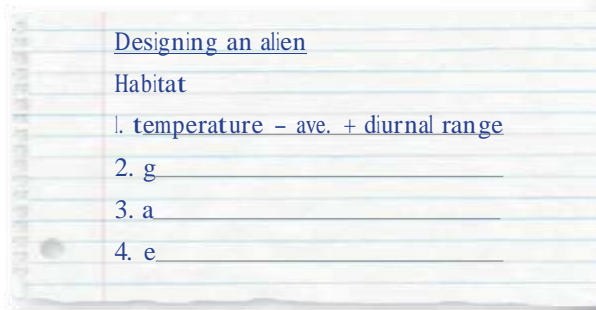 Designing an alien
Habitat
1. temperature – ave. + diurnal range
2. g
3. a
4. e